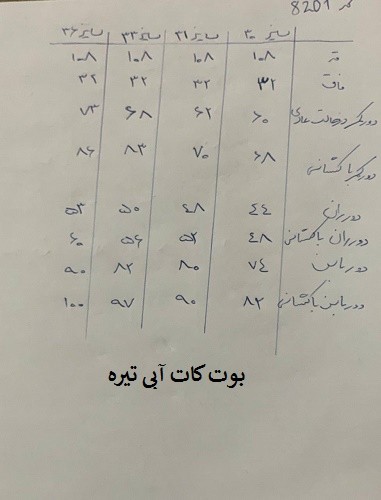 کد 8201
سایز ۳۰ سایز ۳۱ سایز ۳۳ سایز ۳۶
قد ۱۰۸ ۱۰۸ ۱۰۸ ۱۰۸
فاق ۳۲ ۳۲ ۳۲ ۳۲
دور کمر در حالت عادی ۶۰ ۶۲ ۶۸ ۷۳
دور کمر با کشسانی ۶۸ ۷۰ ۸۳ ۸۶
دور ران ۴۴ ۴۸ ۵۰ ۵۳
دور ران با کشسانی ۴۸ ۵۲ ۵۶ ۶۰
دور باسن ۷۴ ۸۰ ۸۲ ۹۰
دور باسن با کشسانی ۸۲ ۹۰ ۹۷ ۱۰۰
بوت کات آبی تیره